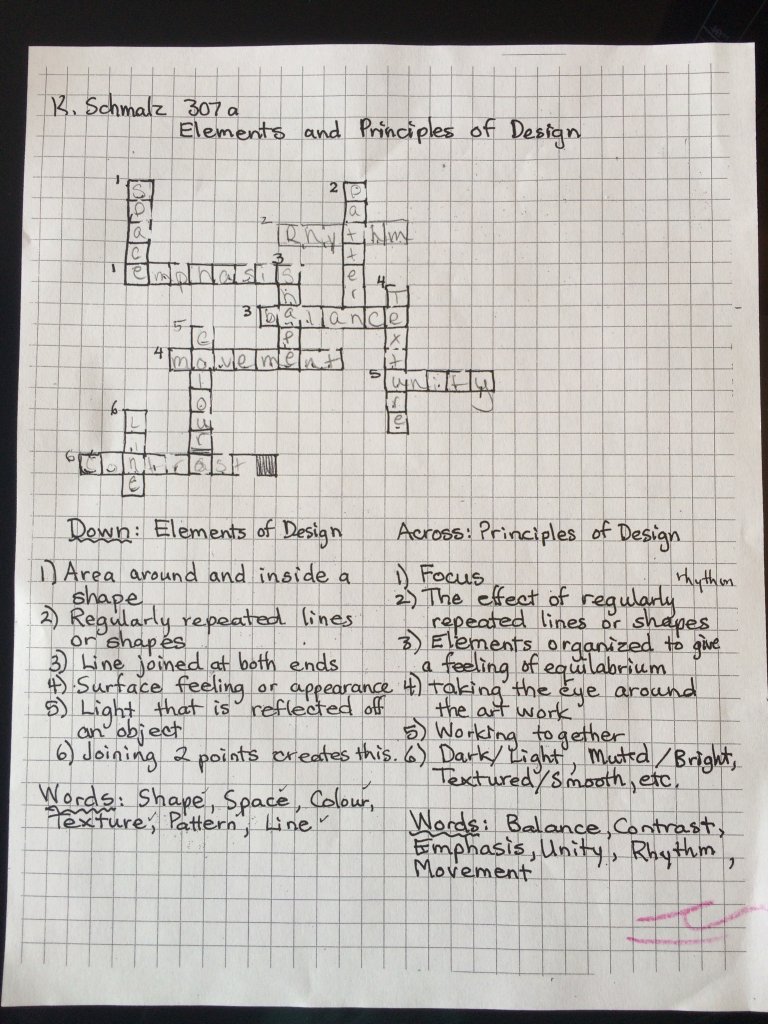 K. Schmalz 307a
Elements and Principles of Design
1
2
2
Rhythm
3
1 emphasis
4
3 balance
5
4 movement
5 unity
6
6 Contrast
Space
Pattern
Shape
Texture
Colour
Line
Down: Elements of Design
1) Area around and inside a
shape
2) Regularly repeated lines
or shapes
3) Line joined at both ends
4) Surface feeling or appearance
5) Light that is reflected off
an object
6) Joining 2 points creates this.
Words: Shape, Space, Colour,
Texture, Pattern, Line
Across: Principles of Design
1) Focus
rhythm
2) The effect of regularly
repeated lines or shapes
3) Elements organized to give
a feeling of equilabrium
4) taking the eye around
the art work
5) Working together
6) Dark/Light, Muted/Bright,
Textured/Smooth, etc.
Words: Balance, Contrast,
Emphasis, Unity, Rhythm,
Movement